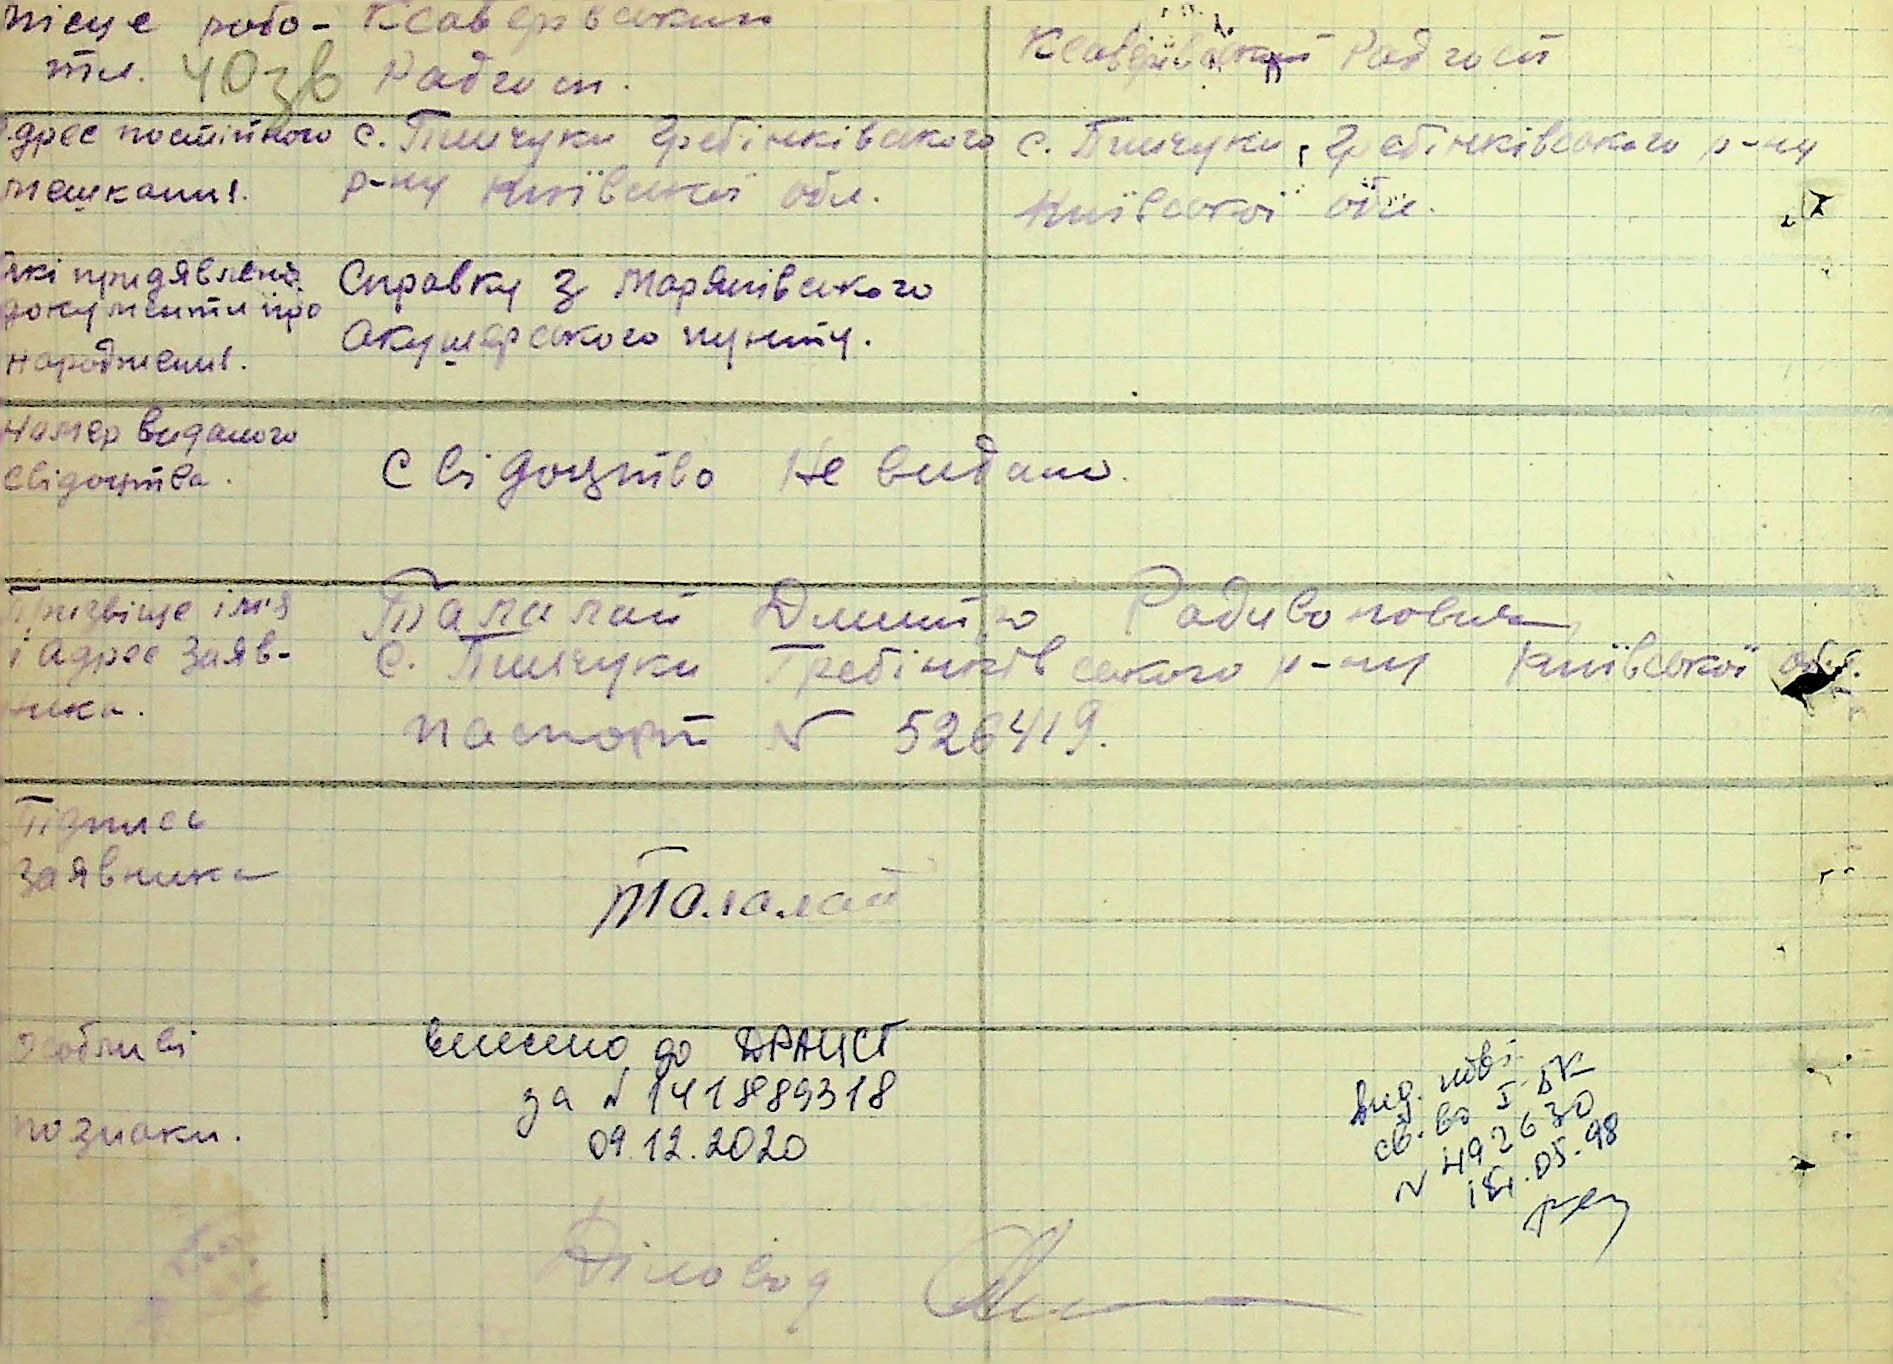 місце робо-
ти.
40зв
Ксаверівський
Радгосп.
Ксаверівський Радгосп
Адрес постійного
мешкання.
с. Пинчуки Гребінківського
р-ну Київської обл.
с. Пинчуки, Гребінківського р-ну
Київської обл.
які придявлені
документи про
народження.
Справку з Мар'янівського
акушерського пункту.
Намер виданого
свідоцтва.
Свідоцтво не видано.
Прізвіще імя
і адрес заяв-
ника.
Талалай Дмитро Радивонович
с. Пинчуки Гребінківського р-ну Київської обл.
паспорт N 526419.
Підпись
заявника
Талалай
Особливі
познаки.
внесено до ДРАЦСГ
за N 141889318
09.12.2020
Вид. повт.
св-во I-БК
N 492630
05-98
Діловод